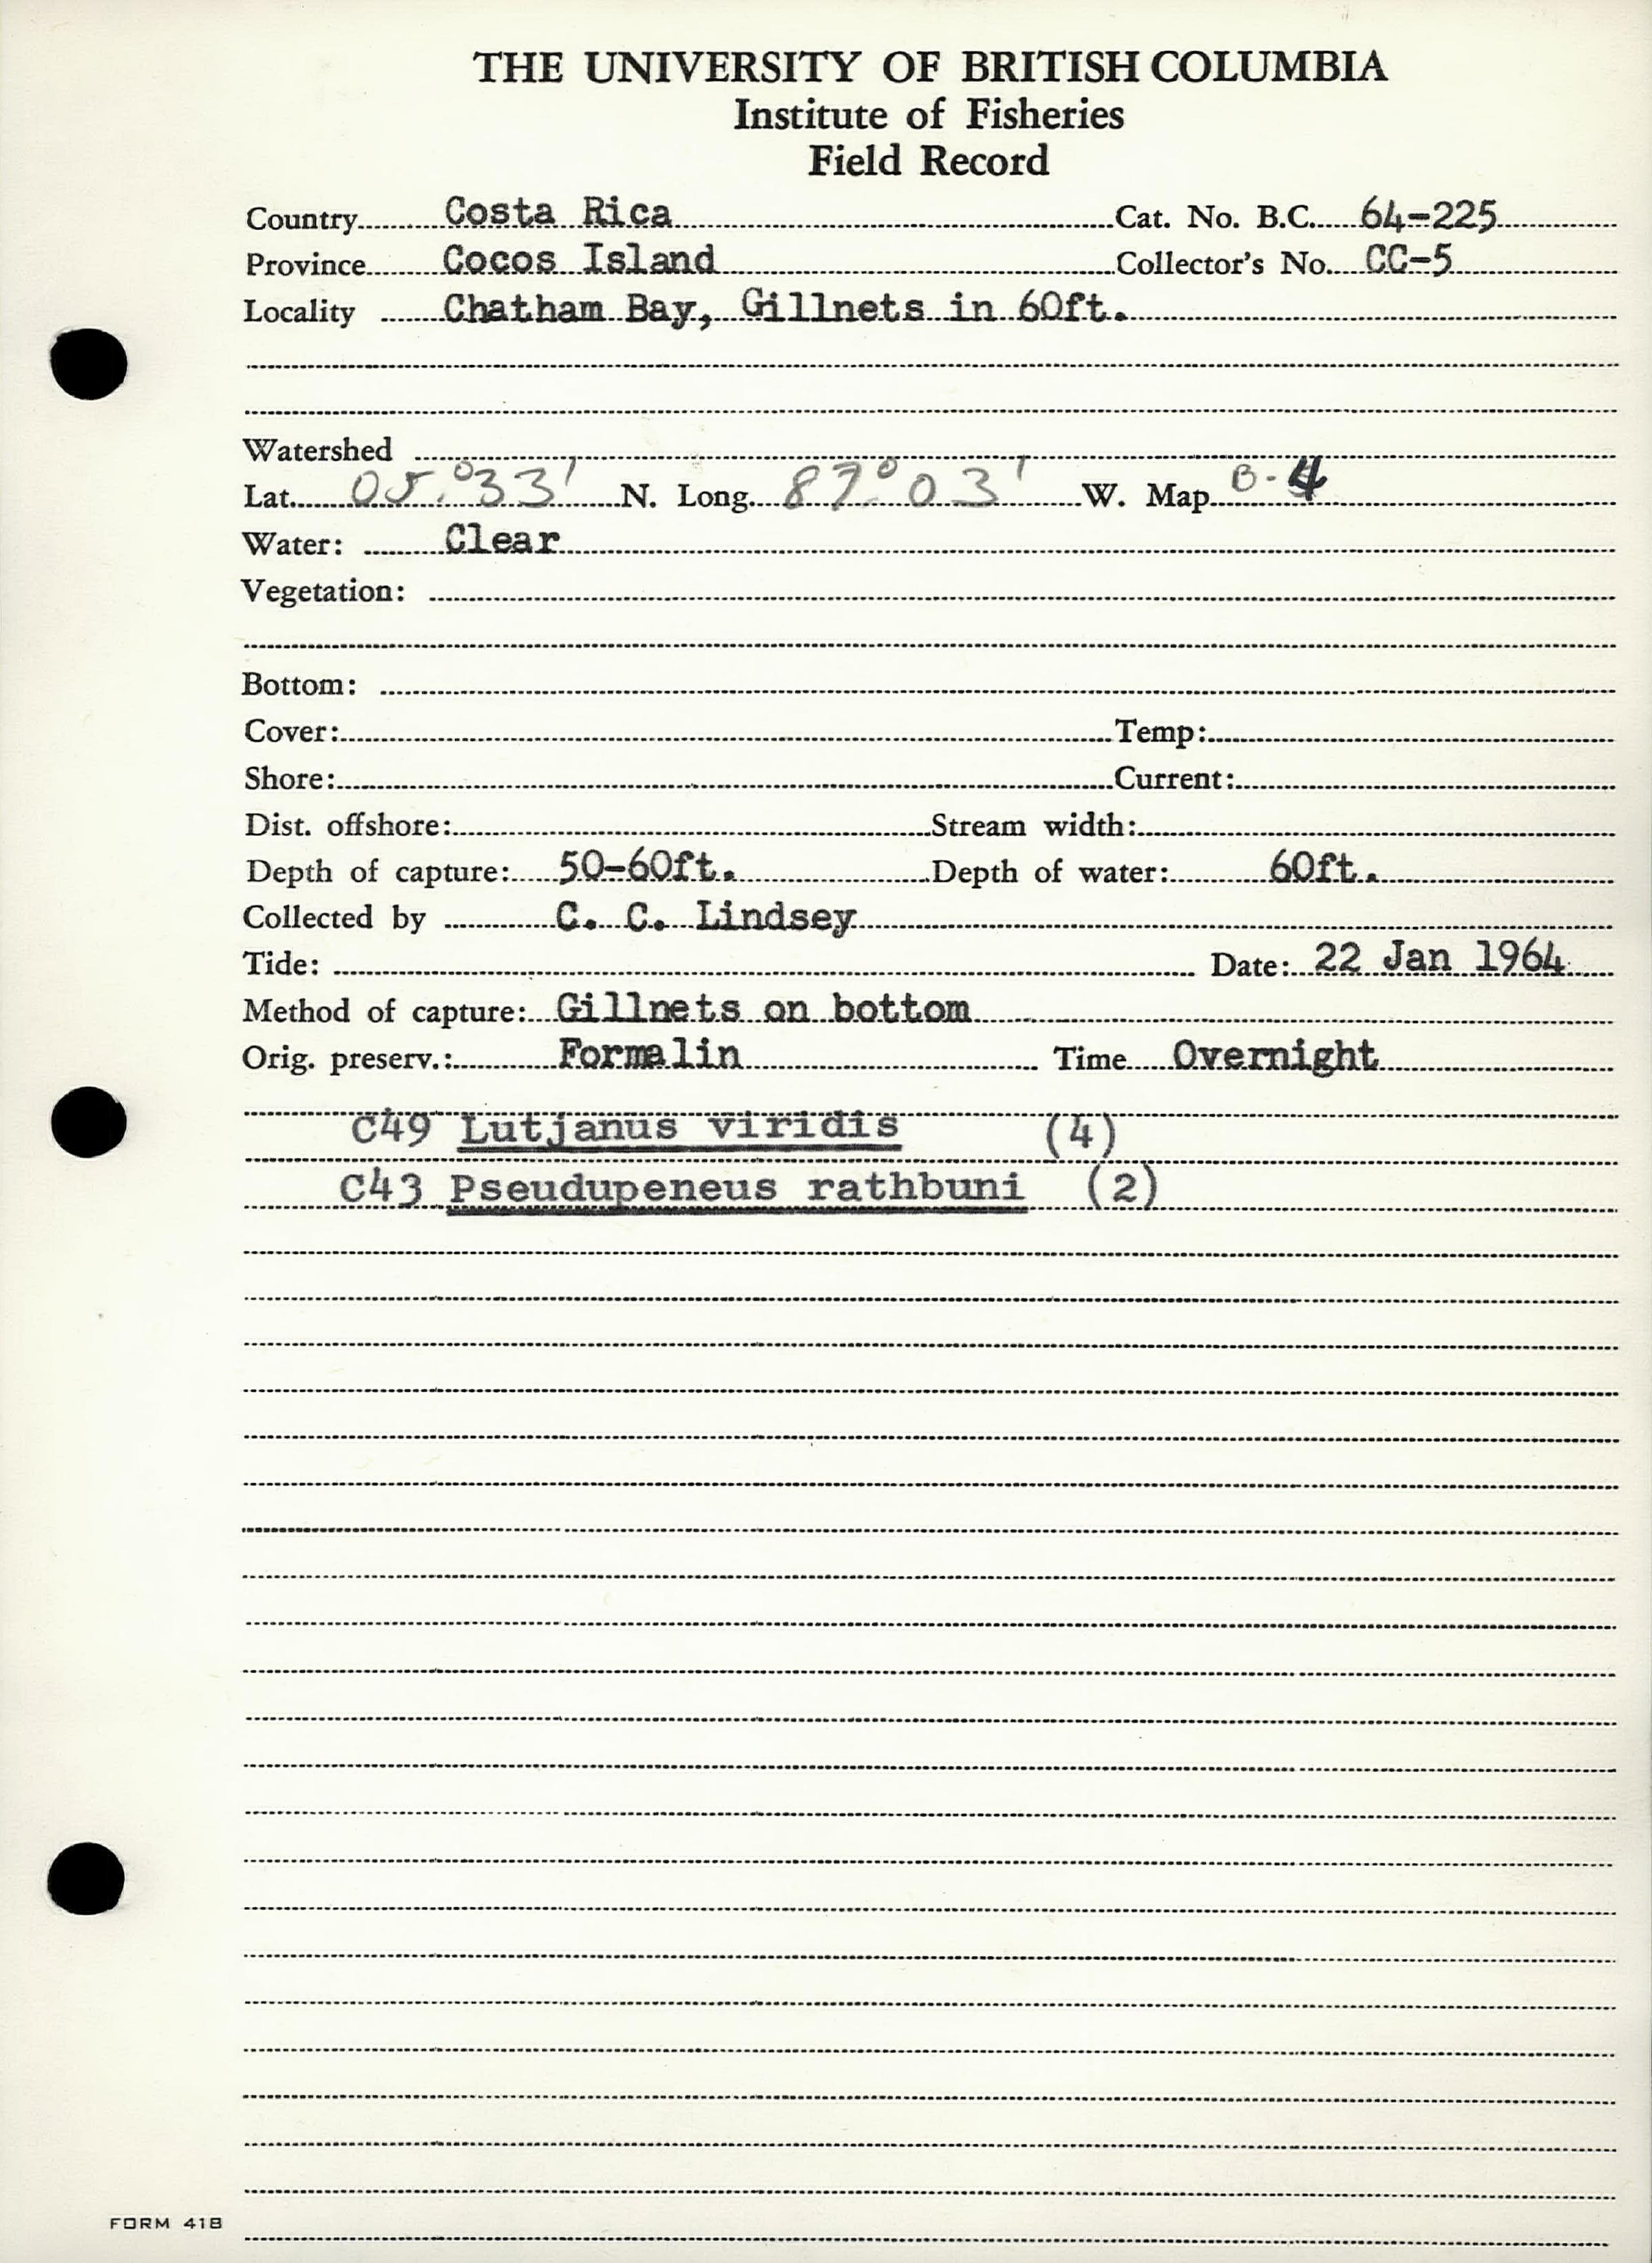 THE UNIVERSITY OF BRITISH COLUMBIA
Institute of Fisheries
Field Record
Country Costa Rica Cat. No. B.C. 64-225
Province Cocos Island Collector's No. CC-5
Locality Chatham Bay, Gillnets in 60ft.
Watershed
Lat. 05°33' N. Long. 87°03' W. Map B-4
Water: Clear
Vegetation:
Bottom:
Cover: Temp:
Shore: Current:
Dist. offshore: Stream width:
Depth of capture: 50-60ft. Depth of water: 60ft.
Collected by C. C. Lindsey
Tide: Date: 22 Jan 1964
Method of capture: Gillnets on bottom
Orig. preserv.: Formalin Time Overnight
C49 Lutjanus viridis (4)
C43 Pseudupeneus rathbuni (2)
FORM 41B